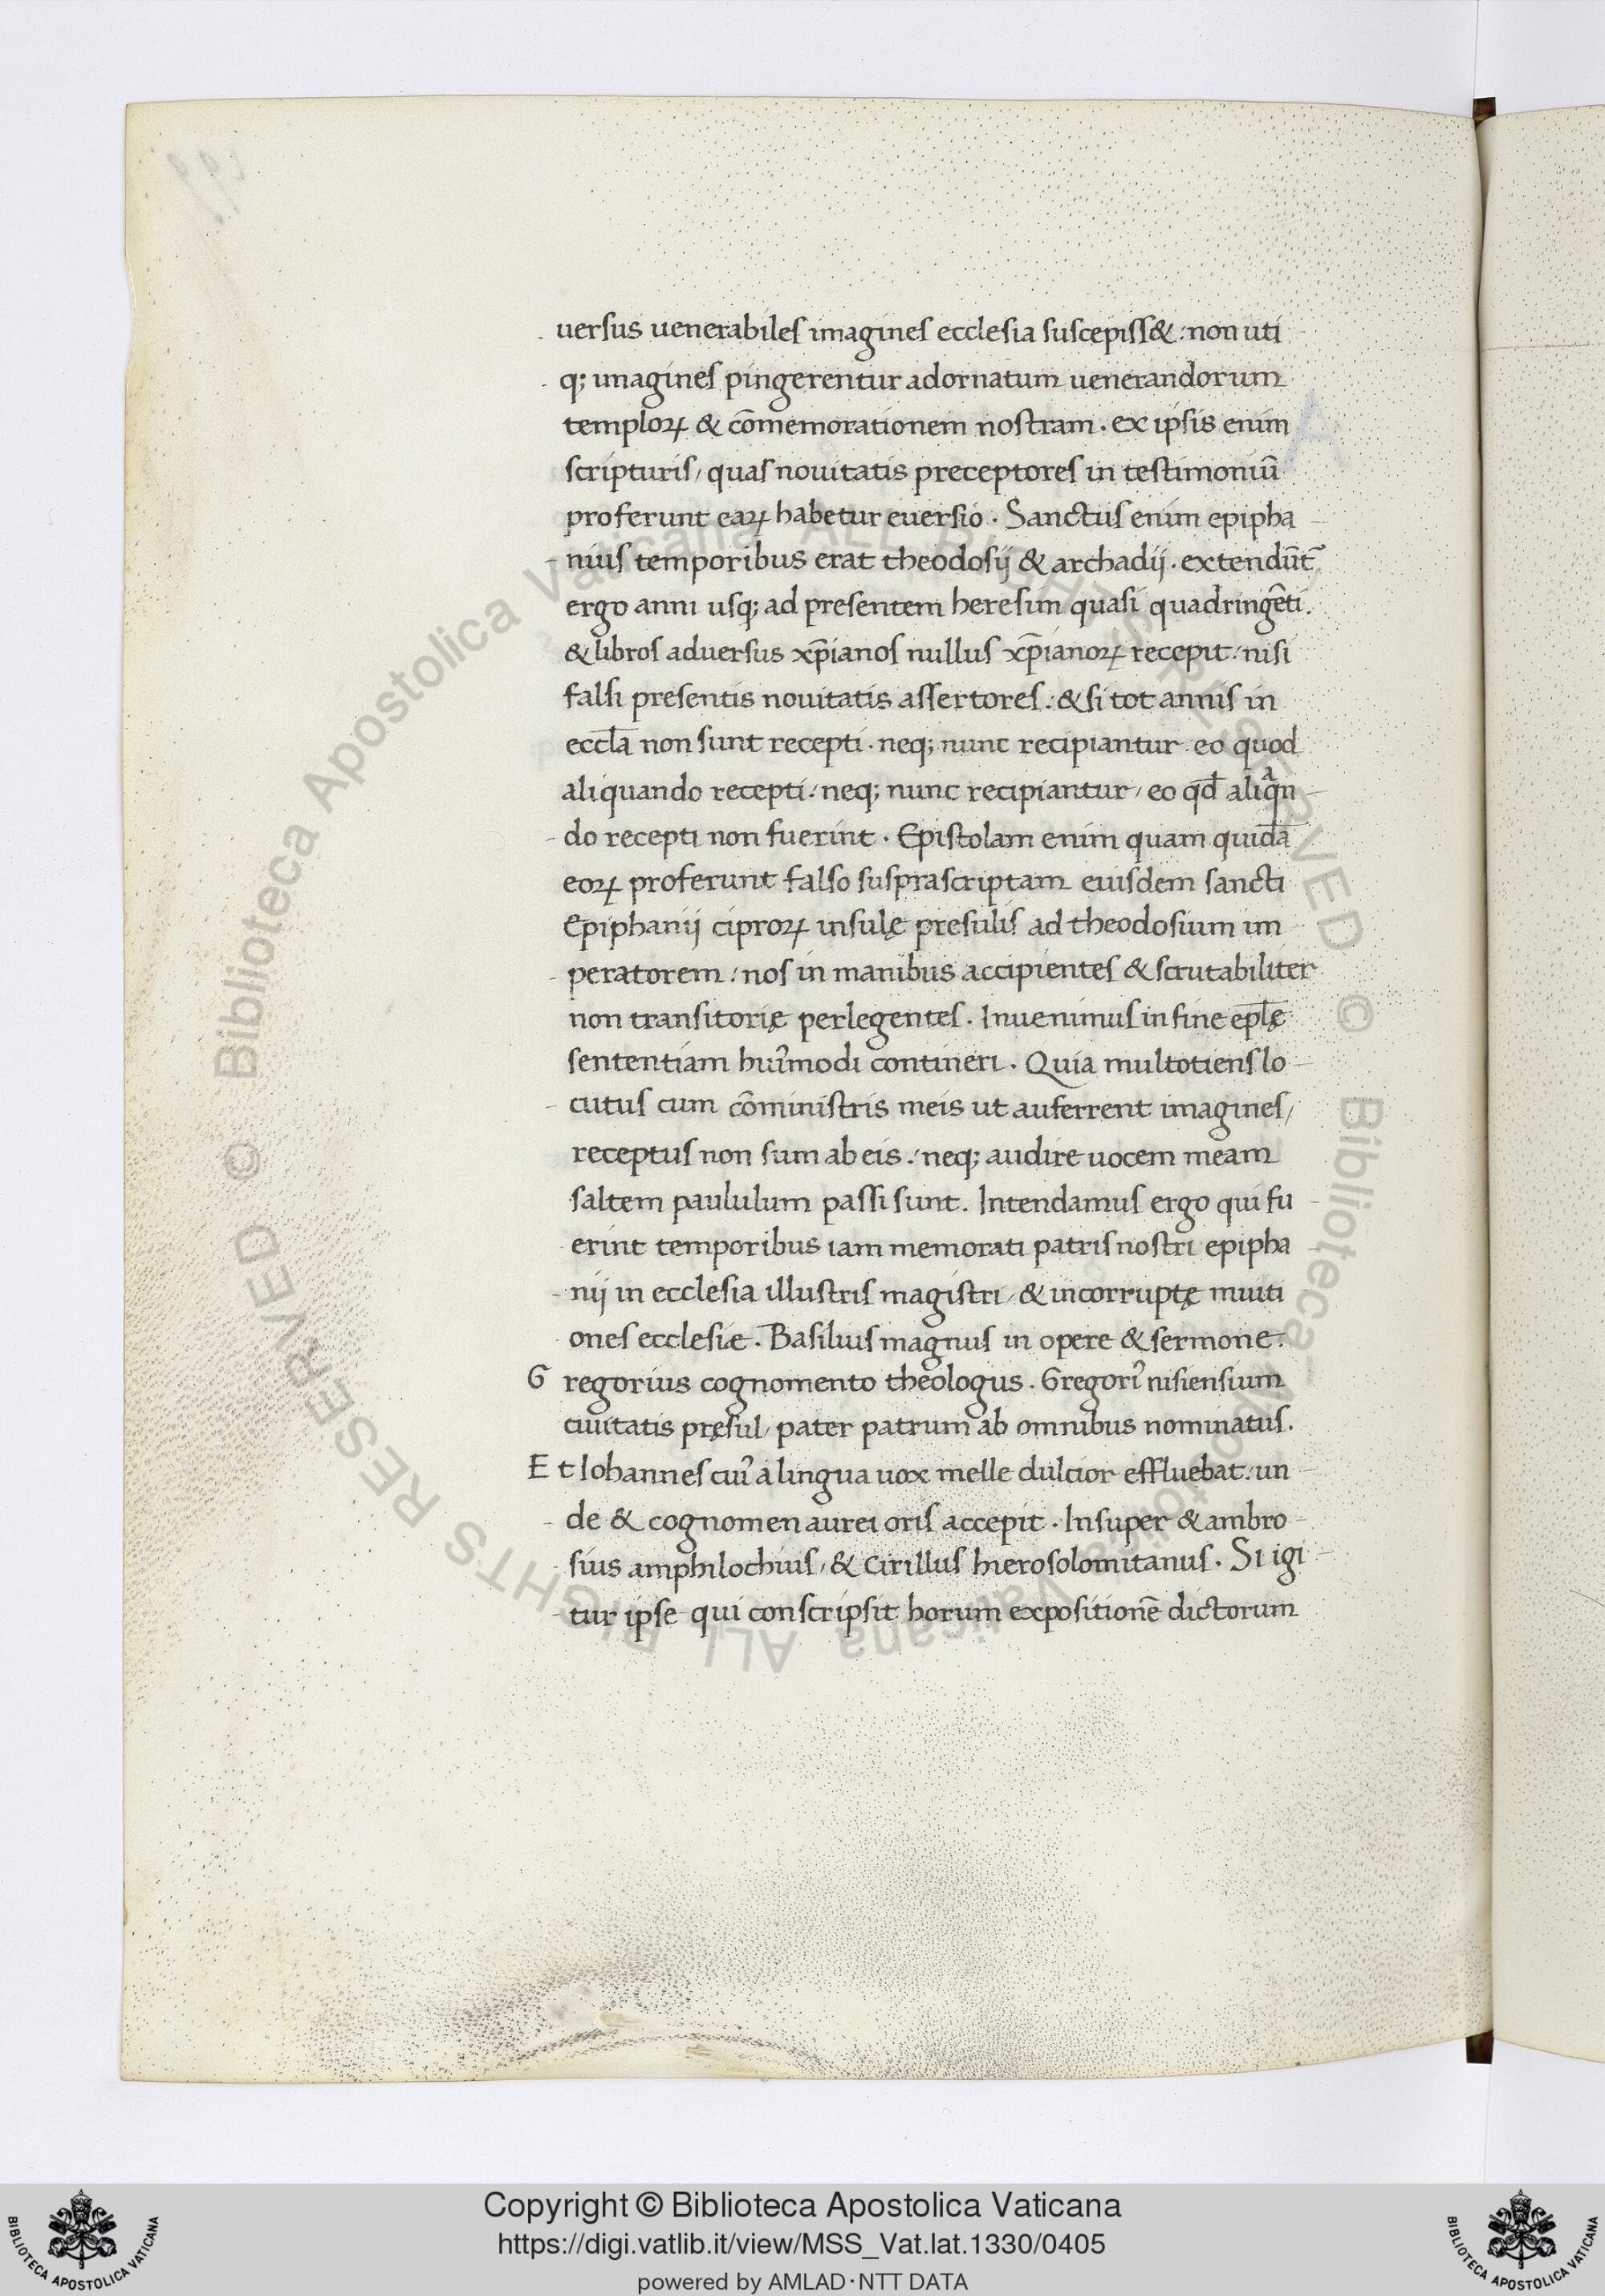 uersus uenerabiles imagines ecclesia suscepiss&: non uti
q; imagines pingerentur adornatum uenerandorum
temploꝝ & cōmemorationem nostram. ex ipsis enim
scripturis, quas nouitatis preceptores in testimoniū
proferunt eaꝝ habetur euersio. Sanctus enim epipha
nius temporibus erat theodosij & archadij. extendūt᷑
ergo anni usq; ad presentem heresim quasi quadringēti.
& libros aduersus xp̄ianos nullus xp̄ianoꝝ recepit: nisi
falsi presentis nouitatis assertores: & si tot annis in
eccl̄a non sunt recepti. neq; nunc recipiantur eo quod
aliquando recepti: neq; nunc recipiantur, eo qd̄ aliqᷓn
do recepti non fuerint. Epistolam enim quam quidā
eoꝝ proferunt falso susprascriptam eiusdem sancti
Epiphanij ciproꝝ insulę presulis ad theodosium im
peratorem: nos in manibus accipientes & scrutabiliter
non transitorię perlegentes. Inuenimus in fine epl̄ę
sententiam huiꝰmodi contineri. Quia multotiens lo
cutus cum cōministris meis ut auferrent imagines,
receptus non sum ab eis: neq; audire uocem meam
saltem paululum passi sunt. Intendamus ergo qui fu
erint temporibus iam memorati patris nostri epipha
nij in ecclesia illustris magistri, & incorruptę muiti
ones ecclesiæ. Basilius magnus in opere & sermone.
G regorius cognomento theologus. Gregoriꝰ nisiensium
ciuitatis pręsul, pater patrum ab omnibus nominatus.
E t Iohannes cuiꝰ a lingua uox melle dulcior effluebat: un
de & cognomen aurei oris accepit. Insuper & ambro
sius amphilochius, & cirillus hierosolomitanus. Si igi
tur ipse qui conscripsit horum expositionē dictorum
© Biblioteca Apostolica Vaticana ALL RIGHTS RESERVED
© Biblioteca Apostolica Vaticana ALL RIGHTS RESERVED
Copyright © Biblioteca Apostolica Vaticana
https://digi.vatlib.it/view/MSS_Vat.lat.1330/0405
powered by AMLAD·NTT DATA
BIBLIOTECA APOSTOLICA VATICANA
BIBLIOTECA APOSTOLICA VATICANA